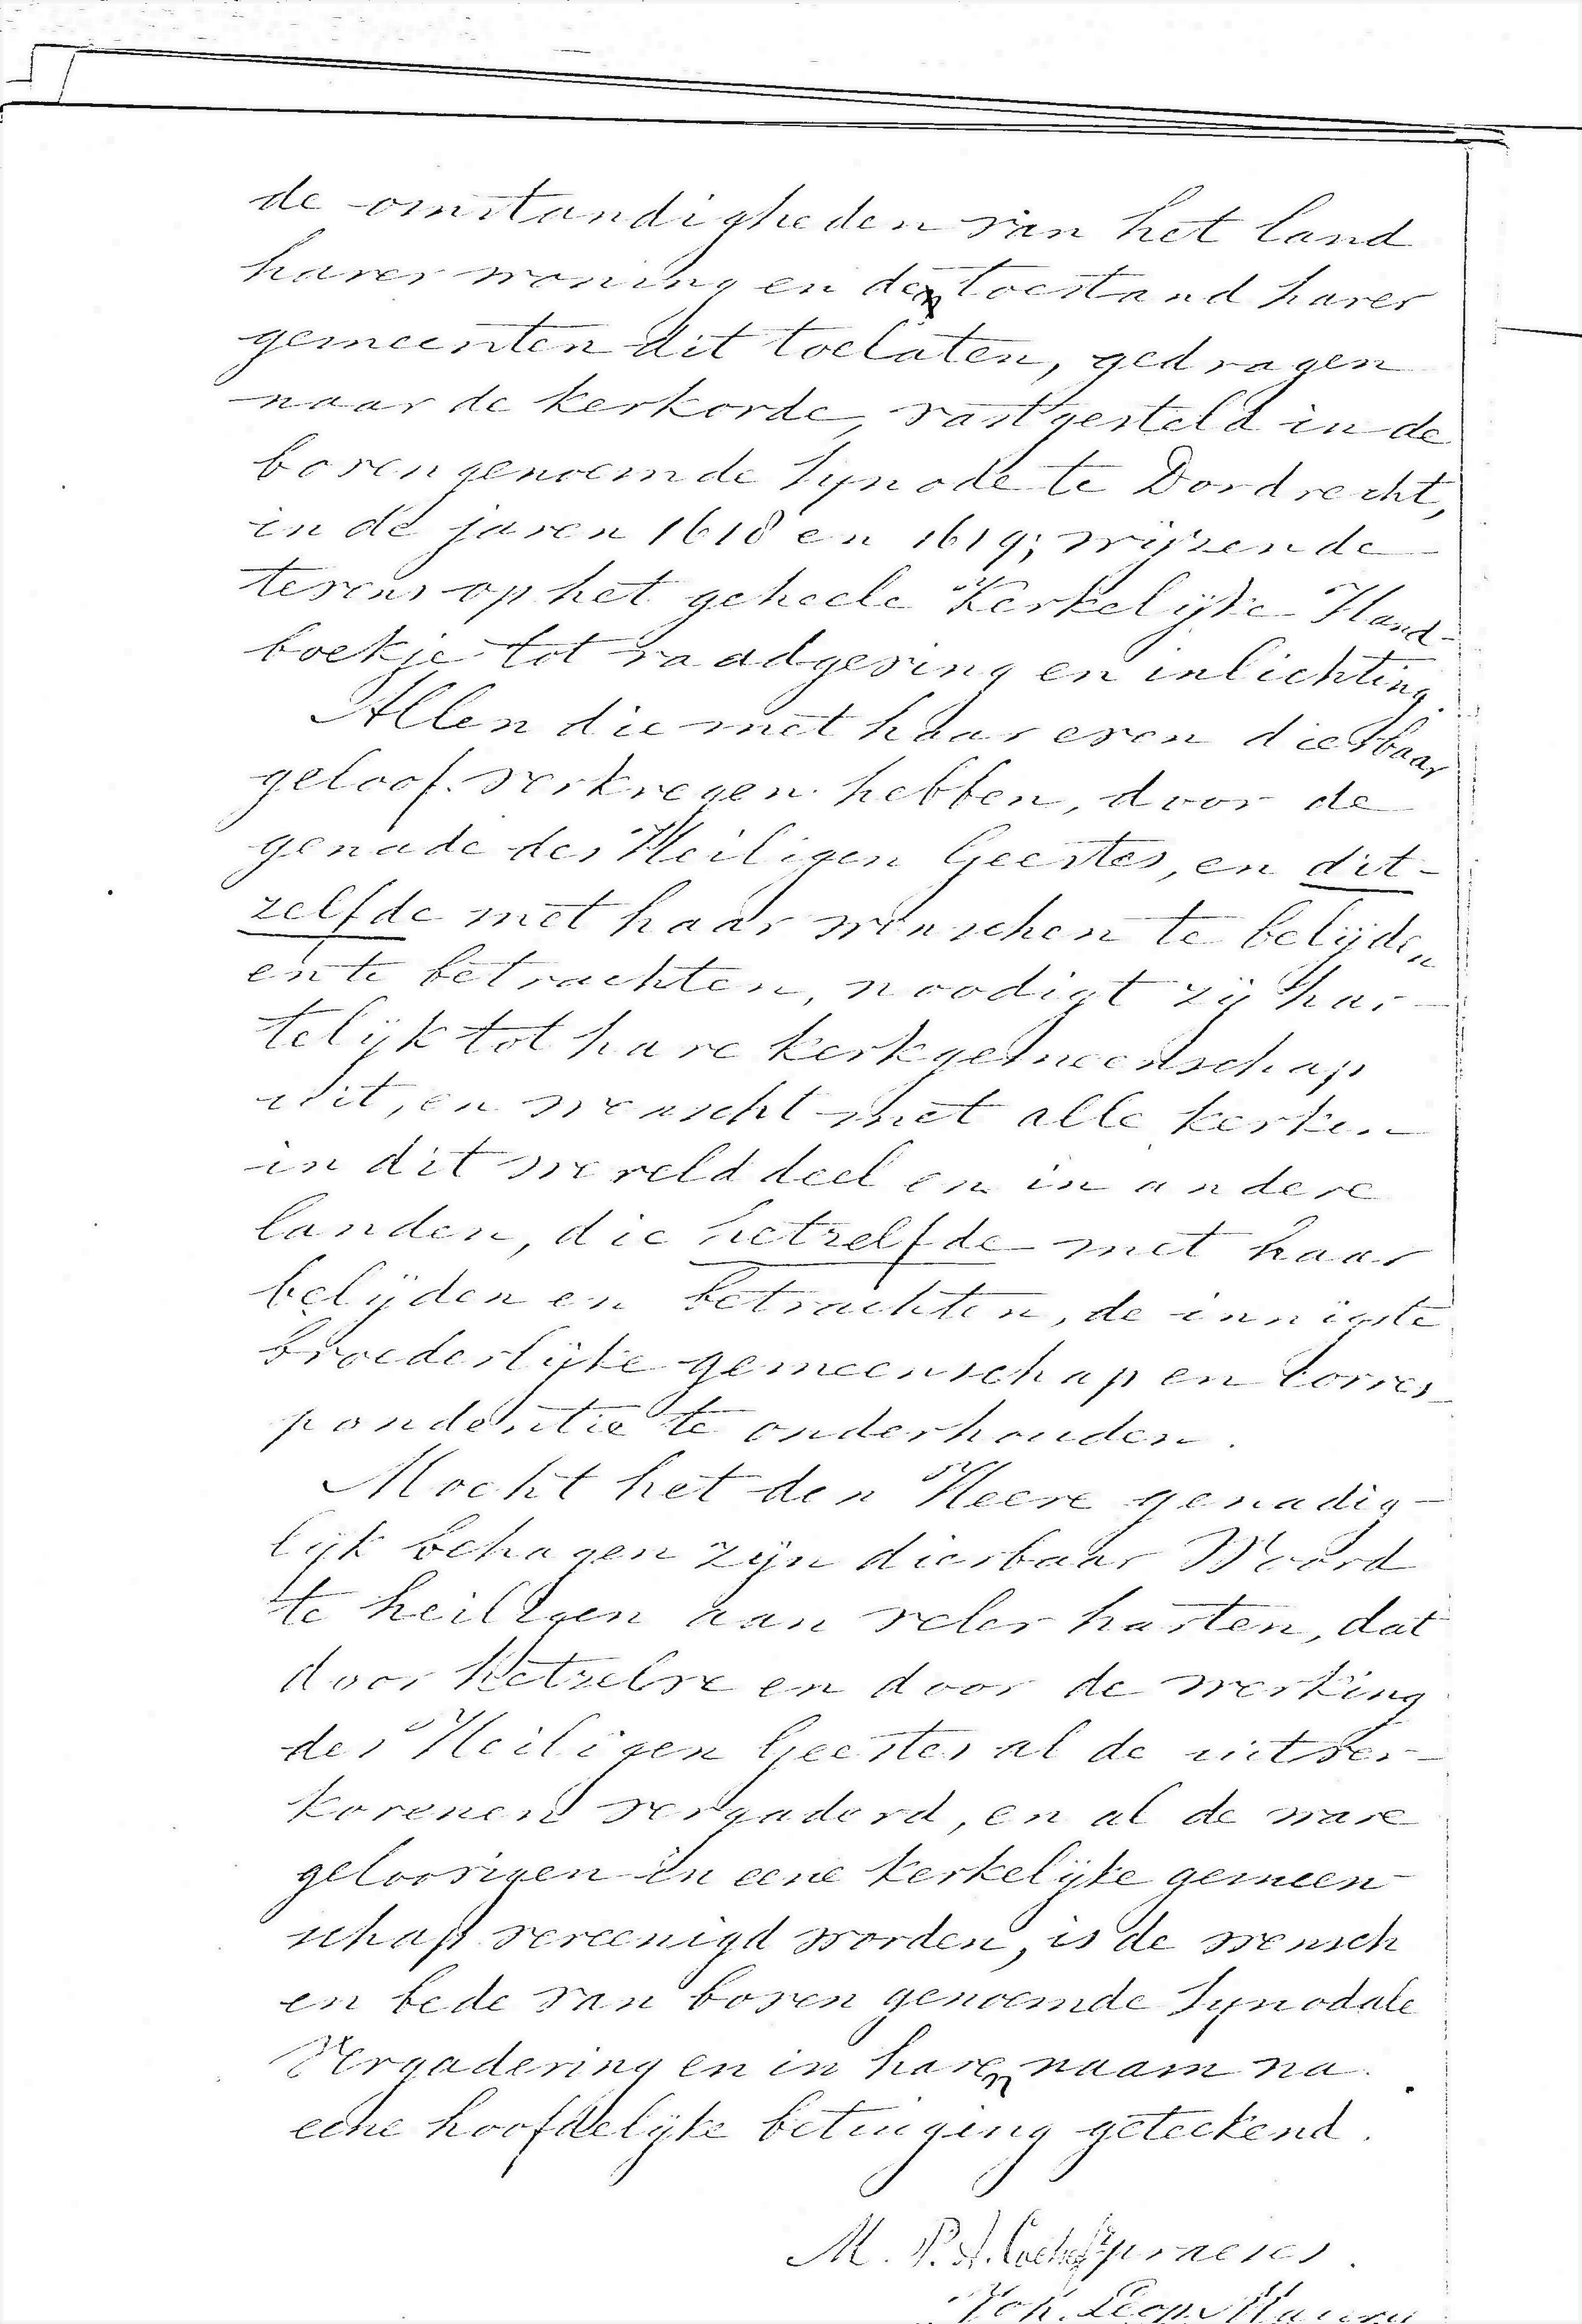 de omstandigheden van het land
harer woning en den toestand harer
gemeenten dit toelaten, gedragen
naar de kerkorde, vastgesteld in de
bovengenoemde Synode te Dordrecht,
in de jaren 1618 en 1619; wijzende
tevens op het geheele Kerkelijke Hand-
boekje tot raadgeving en inlichting.
Allen die met haar even dierbaar
geloof verkregen hebben, door de
genade des Heiligen Geestes, en dit-
zelfde met haar wenschen te belijden
en te betrachten, noodigt zij har-
telijk tot hare kerkgemeenschap
uit, en wenscht met alle kerken
in dit werelddeel en in andere
landen, die hetzelfde met haar
belijden en betrachten, de innigste
broederlijke gemeenschap en Corres-
pondentie te onderhouden.
Mocht het den Heere genadig-
lijk behagen zijn dierbaar Woord
te heiligen aan veler harten, dat
door hetzelve en door de werking
des Heiligen Geestes al de uitver-
korenen vergaderd, en al de ware
geloovigen in eene kerkelijke gemeen-
schap vereenigd worden, is de wensch
en bede van boven genoemde Synodale
Vergadering en in haren naam na
eene hoofdelijke betuiging geteekend.
M. P. A. praeses.
Joh. Leop.